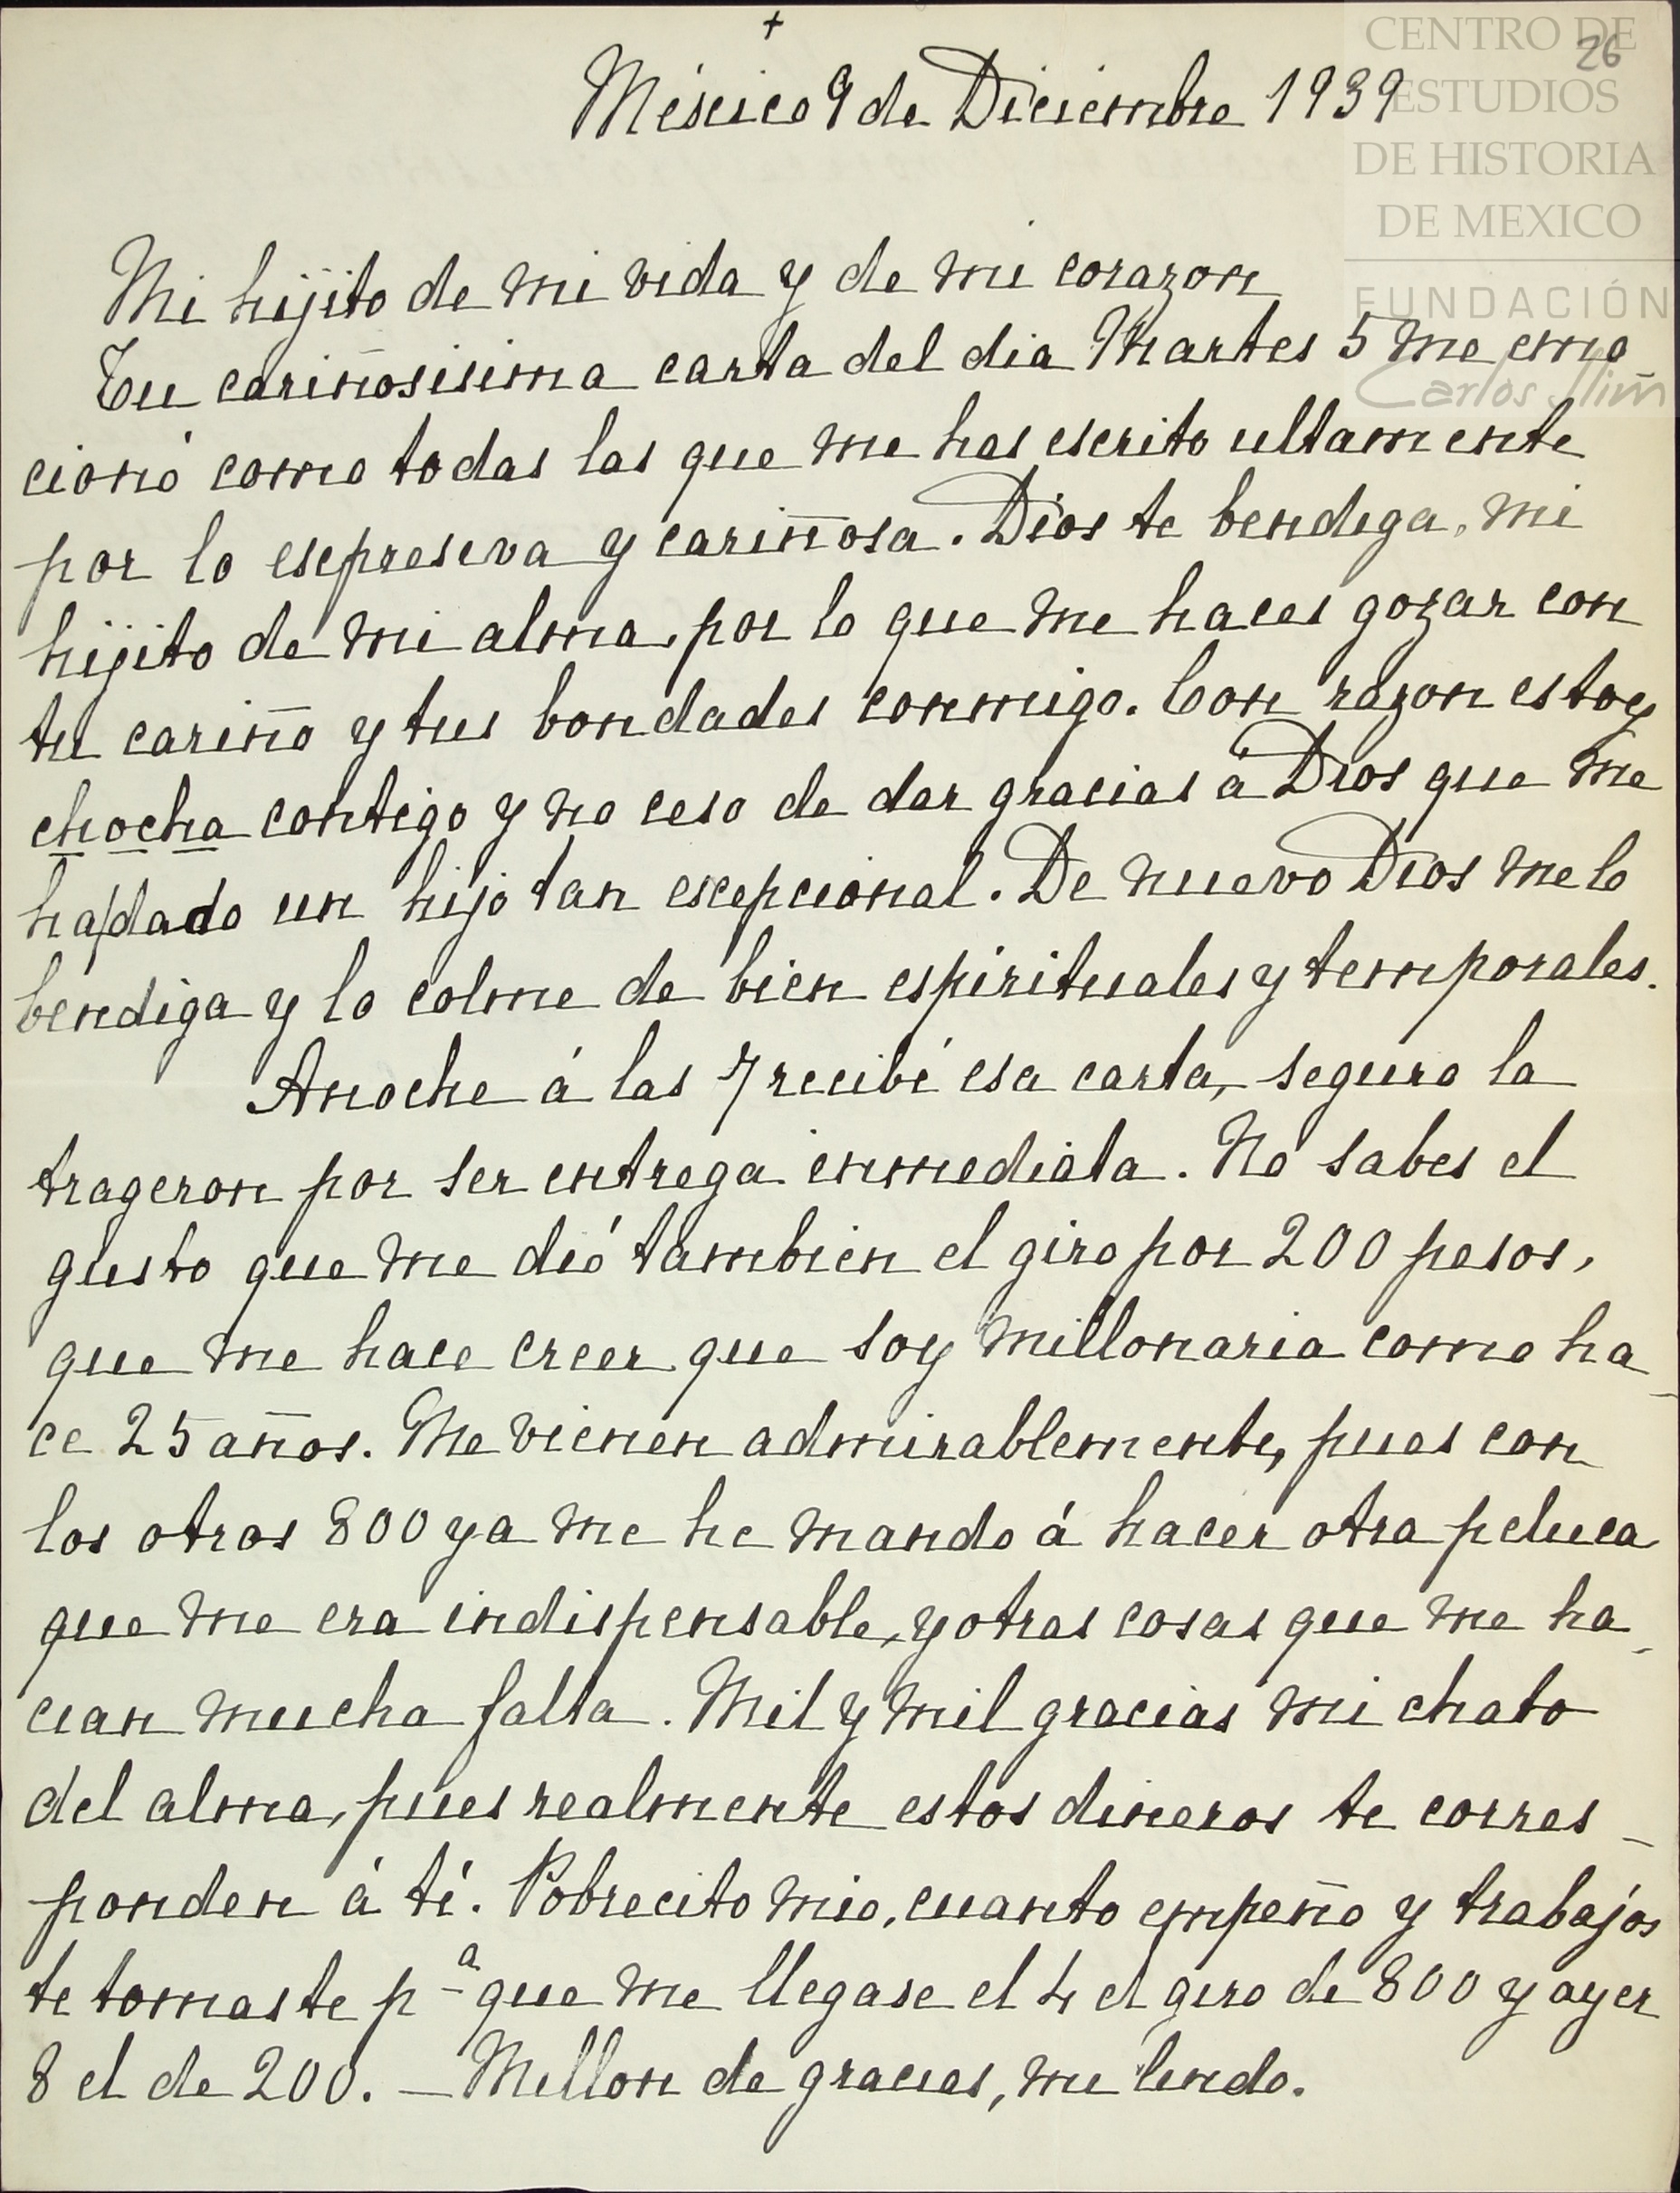 +
CENTRO DE
26
ESTUDIOS
DE HISTORIA
DE MEXICO
FUNDACIÓN
Carlos Slim
México 9 de Diciembre 1939
Mi hijito de mi vida y de mi corazon
Tu cariñosisima carta del dia Martes 5 me emo
cionó como todas las que me has escrito ultamente
por lo espresiva y cariñosa. Dios te bendiga, mi
hijito de mi alma, por lo que me haces gozar con
tu cariño y tus bondades conmigo. Con razon estoy
chocha contigo y no ceso de dar gracias á Dios que me
ha dado un hijo tan escepcional. De nuevo Dios me lo
bendiga y lo colme de bien espirituales y temporales.
Anoche á las 7 recibí esa carta, seguro la
trageron por ser entrega inmediata. No sabes el
gusto que me dió tambien el giro por 200 pesos,
que me hace creer que soy millonaria como ha_
ce 25 años. Me vienen admirablemente, pues con
los otros 800 ya me he mando á hacer otra peluca
que me era indispensable, y otras cosas que me ha_
cian mucha falta. Mil y mil gracias mi chato
del alma, pues realmente estos dineros te corres_
ponden á tí. Pobrecito mio, cuanto empeño y trabajos
te tomaste pª que me llegase el 4 el giro de 800 y ayer
8 el de 200. — Millon de gracias, mi lindo.